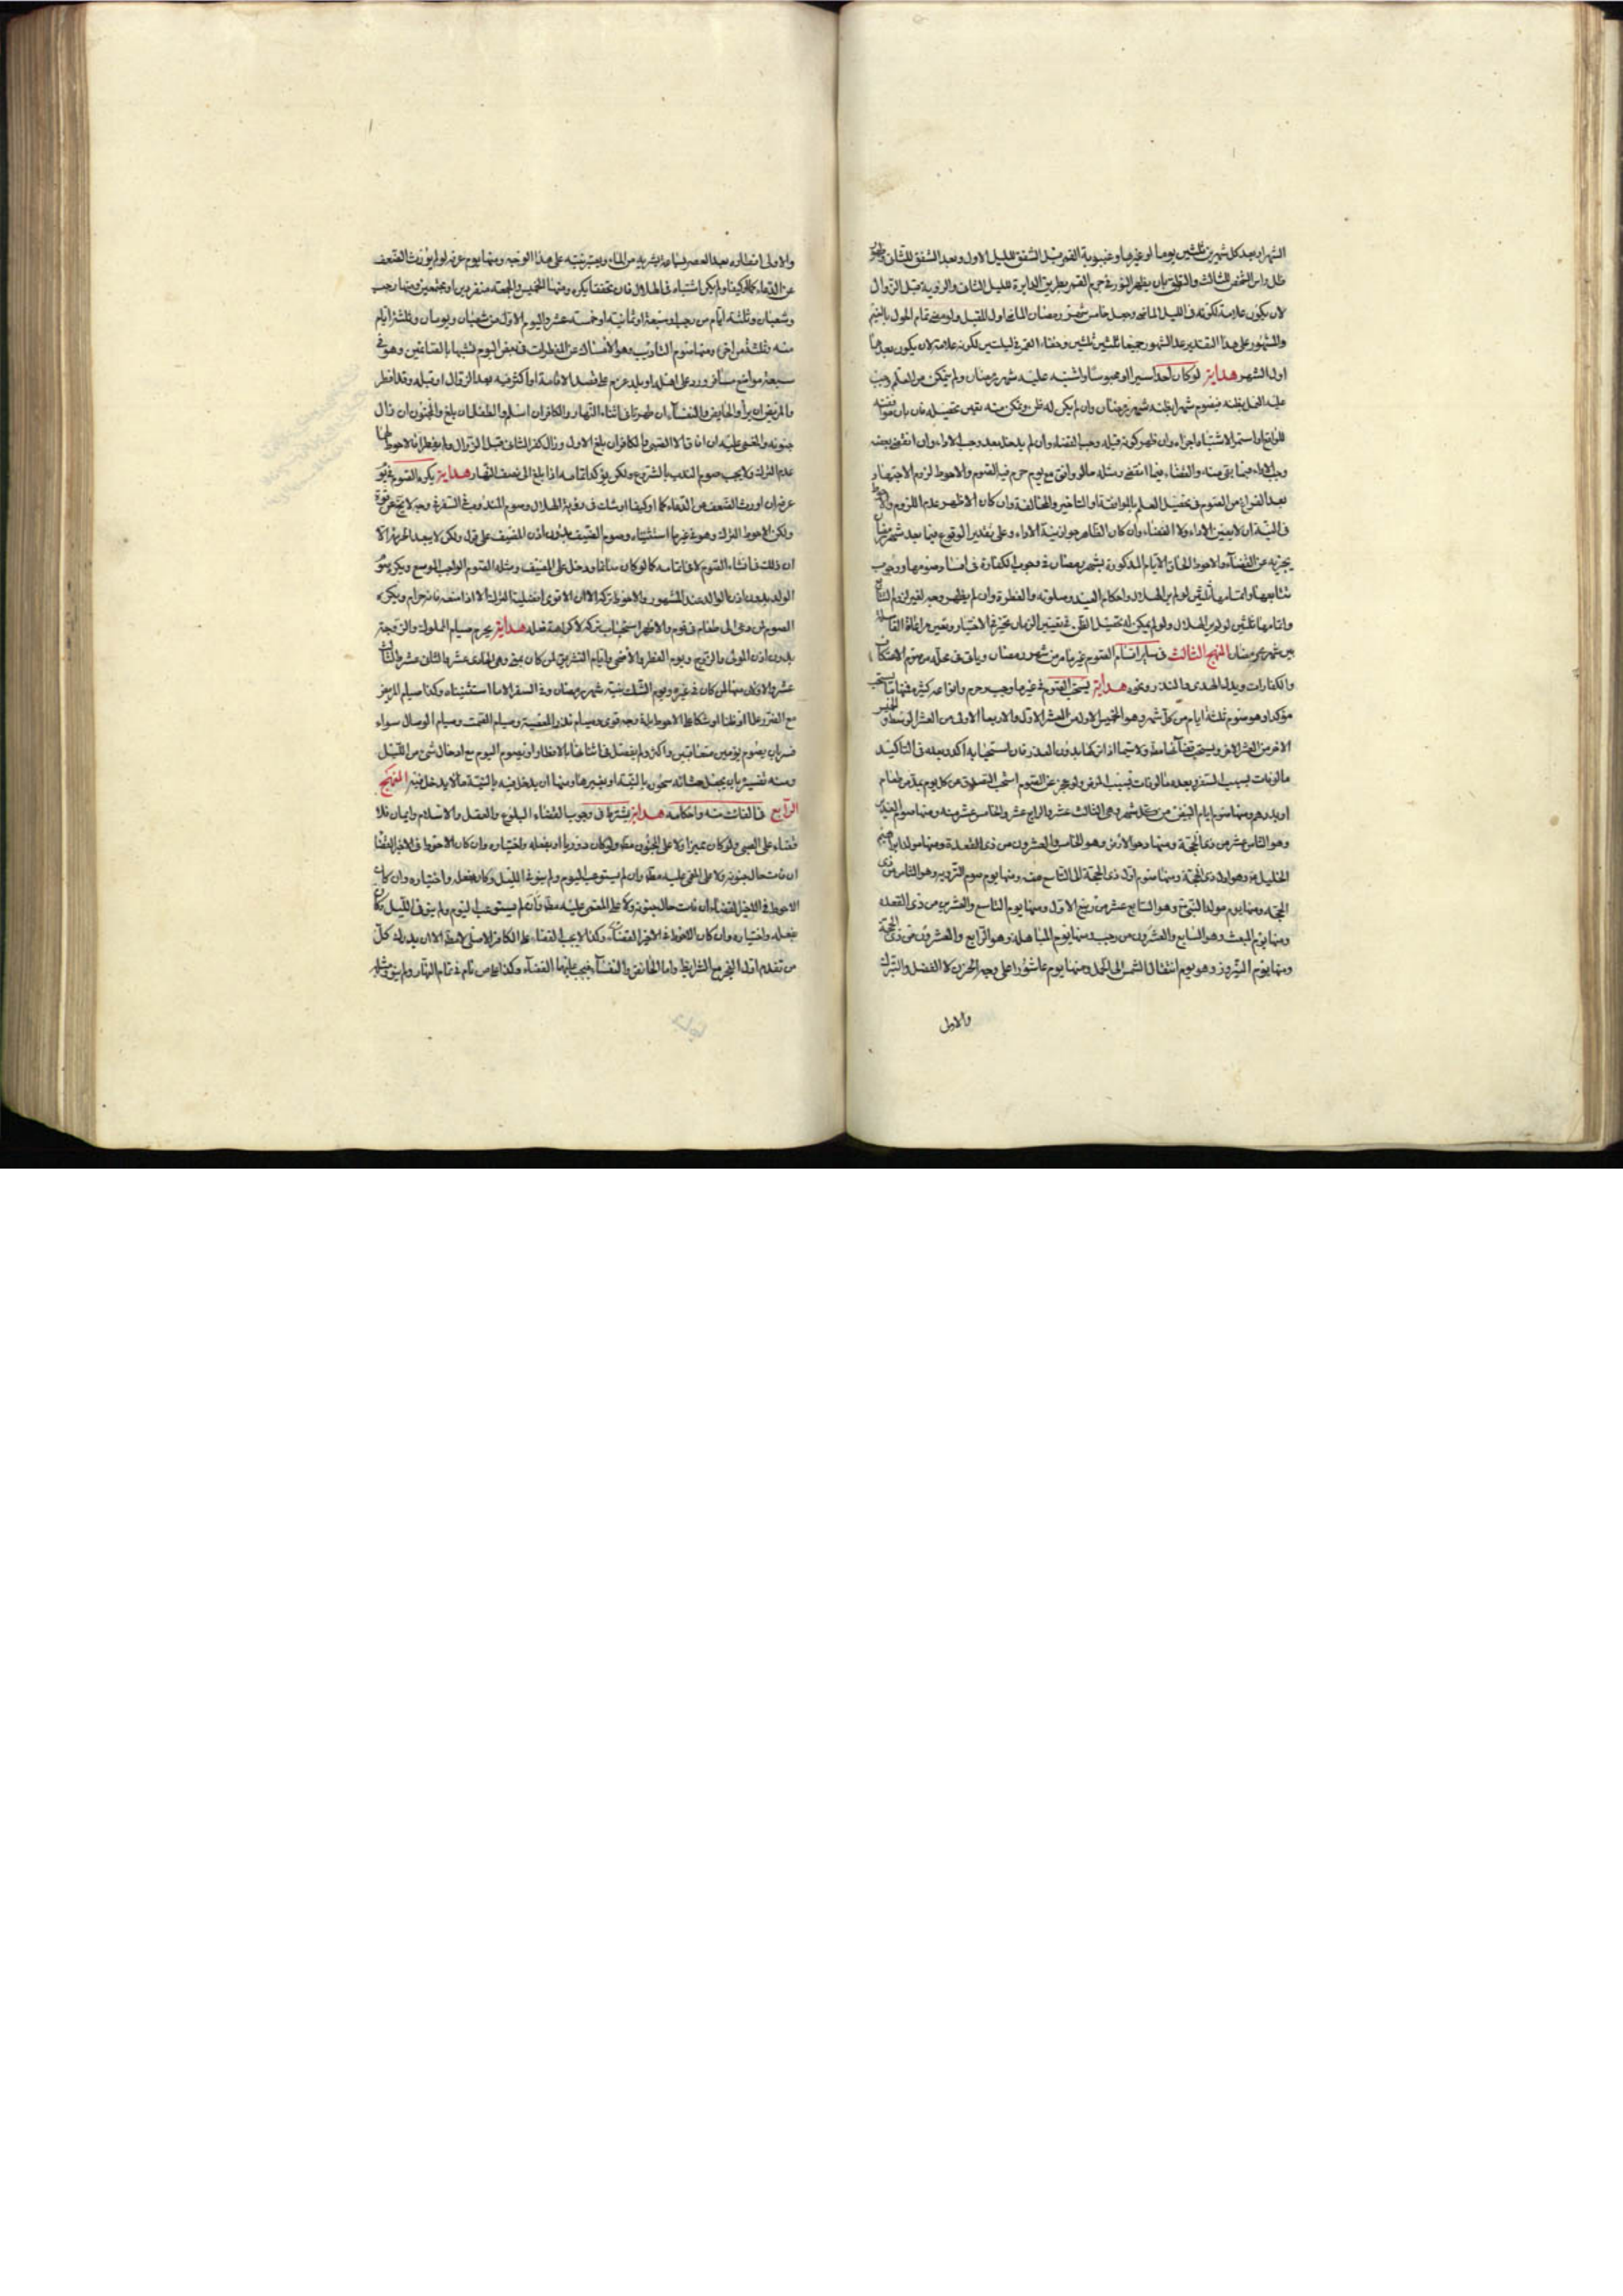 الشهر او بعد كل شهرين ثلثين يوما او غيرها وغيبوبة القمر قبل الشفق لليل الاول وبعد الشفق للثاني
ظل راس الشخص للثالث والتطوق بان يظهر النور في جرم القمر بطريق الدايرة لليل الثاني والرؤية قبل الزوال
لان يكون علامة لكونه في الليل الماضي وجعل خامس شهر رمضان الماضي اول المقبل ولو مضى تمام الحول بالغيم
والمشهور على هذا التقدير عد الشهور جميعا ثلثين ثلثين وخفاء القمر في ليلتين لكونه علامة لان يكون بعدها
اول الشهر هداية لو كان احد اسيرا او محبوسا واشتبه عليه شهر رمضان ولم يتمكن من العلم وجب
عليه العمل بظنه فيصوم شهرا يظنه شهر رمضان وان لم يكن له ظن وتمكن منه تعين تحصيله فان بان موافقته
للواقع او استمر الاشتباه اجزاه وان ظهر كونه قبله وجب القضاء وان لم يدخل بعد وجب الاداء وان انقضى بعضه
وجب الاداء فيما بقي منه والقضاء فيما انقضى ومثله ما لو وافق مع يوم حرم فيه الصوم والاحوط لزوم الاجتهاد
بعد الفراغ من الصوم في تحصيل العلم بالموافقة او التاخير والمخالفة وان كان الاظهر عدم اللزوم والاحوط
في النية ان لا يعين الاداء ولا القضاء وان كان الظاهر جواز نية الاداء وعلى تقدير الوقوع فيما بعد شهر رمضان
يجزيه عن القضاء والاحوط الحاق الايام المذكورة بشهر رمضان في وجوب الكفارة في افساد صومها ووجوب
تتابعها واتمامها ثلثين لو لم ير الهلال واحكام العيد وصلوته والفطرة وان لم يظهر وجه لغير لزوم التتابع
واتمامها ثلثين لو لم ير الهلال ولو لم يمكن له تحصيل الظن في تعيين الزمان تخير في الاختيار وتعين مراعاة المقابلة
بين شهري رمضان المنهج الثالث في ساير اقسام الصوم غير ما مر من شهر رمضان وياتي في محله من صوم الاعتكاف
والكفارات وبدل الهدى والنذر ونحوه هداية يستحب الصوم في غير ما وجب وحرم وانواعه كثيرة فمنها ما يستحب
مؤكدا وهو صوم ثلثة ايام من كل شهر وهو الخميس الاول من العشر الاول والاربعا الاول من العشر الوسط والخميس
الاخر من العشر الاخر ويستحب قضاؤها مطلقا ولا سيما اذا تركها بدون العذر فان استحبابه اكد وبعده في التاكيد
ما لو فات بسبب السفر وبعده ما لو فات بسبب المرض ولو عجز عن الصوم استحب التصدق عن كل يوم بمد من طعام
او بدرهم ومنها صوم ايام البيض من كل شهر وهي الثالث عشر والرابع عشر والخامس عشر منه ومنها صوم الغدير
وهو الثامن عشر من ذي الحجة ومنها دحو الارض وهو الخامس والعشرون من ذي القعدة ومنها مولد ابراهيم
الخليل ع وهو اول ذي الحجة ومنها صوم اول ذي الحجة الى التاسع منه ومنها يوم صوم التروية وهو الثامن من ذي
الحجة ومنها يوم مولد النبي ص وهو السابع عشر من ربيع الاول ومنها يوم التاسع والعشرين من ذي القعدة
ومنها يوم المبعث وهو السابع والعشرون من رجب ومنها يوم المباهلة وهو الرابع والعشرون من ذي الحجة
ومنها يوم النيروز وهو يوم انتقال الشمس الى الحمل ومنها يوم عاشورا على وجه الحزن لا الفضل والتبرك
والاولى
والاولى افطاره بعد العصر بساعة بشربة من الماء ويبيت نيته على هذا الوجه ومنها يوم عرفه لو لم يورث الضعف
عن الدعاء كما وكيفا ولم يكن اشتباه في الهلال فان تحققا يكره ومنها الخميس والجمعة منفردين او مجتمعين ومنها رجب
وشعبان وثلثة ايام من رجب او سبعة او ثمانية او خمسة عشر واليوم الاول من شعبان ويومان وثلثة ايام
منه وثلثة من اخره ومنها صوم التاديب وهو الامساك عن المفطرات في بعض اليوم تشبها بالصائمين وهو في
سبعة مواضع مسافر ورد على اهله او بلد عزم على قصد الاقامة او اكثر فيه بعد الزوال او قبله وقد افطر
والمريض ان برأ والحايض والنفساء ان طهرتا في اثناء النهار والكافر ان اسلم والطفل ان بلغ والمجنون ان زال
جنونه والمغمى عليه ان افاق الا الصبي والكافر ان بلغ الاول وزال كفر الثاني قبل الزوال ولم يفطرا فالاحوط لهما
عدم الترك ولا يجب صوم الندب بالشروع ولكن يؤكد اتمامه اذا بلغ الى نصف النهار هداية يكره الصوم في يوم
عرفه ان اورث الضعف عن الدعاء كما او كيفا او شك في رؤية الهلال وصوم المندوب في السفر في وجه لا يخ عن قوة
ولكن الاحوط الترك وهو في غير ما استثنياه وصوم الضيف بدون اذن المضيف على قول ولكن لا يبعد الحرمة الا
ان ذلك في انشاء الصوم لا في اتمامه كما لو كان سابقا ودخل على المضيف ومثله الصوم الواجب الموسع ويكره صوم
الولد بدون اذن الوالد عند المشهور والاحوط تركه الا ان الاقوى افضلية الترك الا اذا منعه فانه حرام ويكره
الصوم لمن دعى الى طعام في يوم والاظهر استحباب تركه لا كراهة فعله هداية يحرم صيام المملوك والزوجة
بدون اذن المولى والزوج ويوم الفطر والاضحى وايام التشريق لمن كان بمنى وهي الحادي عشر والثاني عشر والثالث
عشر والاولان منها لمن كان في غيره ويوم الشك بنية شهر رمضان وفي السفر الا ما استثنيناه وكذا صيام المريض
مع الضرر علما او ظنا او شكا على الاحوط بل في وجه قوي وصيام نذر المعصية وصيام الصمت وصيام الوصال سواء
فسر بان يصوم يومين متعاقبين او اكثر ولم يفصل في اثنائها بالافطار او بصوم اليوم مع ادخال شيء من الليل
ومنه تفسيره بان يجعل عشائه سحوره بالنية او بغيرها ومنها ان يدخل فيه بالنية ما لا يدخل فيه المنهج
الرابع في الفائت منه واحكامه هداية يشترط في وجوب القضاء البلوغ والعقل والاسلام وايمان فلا
قضاء على الصبي ولو كان مميزا ولا على المجنون مطلقا ولو كان دوريا او بفعله واختياره وان كان الاحوط في الاخير القضاء
ان فات حال جنونه ولا على المغمى عليه مطلقا وان لم يستوعب اليوم ولم ينو في الليل وكان بفعله واختياره وان كان
الاحوط في الاخير القضاء ان فات حال جنونه ولا على المغمى عليه مطلقا وان لم يستوعب اليوم ولم ينو في الليل وكان
بفعله واختياره وان كان الاحوط في الاخير القضاء وكذا لا يجب القضاء على الكافر الاصلي لا مطلقا الا ان يدرك كل
من تقدم اول الفجر مع الشرايط واما الحائض والنفساء فيجب عليهما القضاء وكذا على من نام في تمام النهار ولم ينو